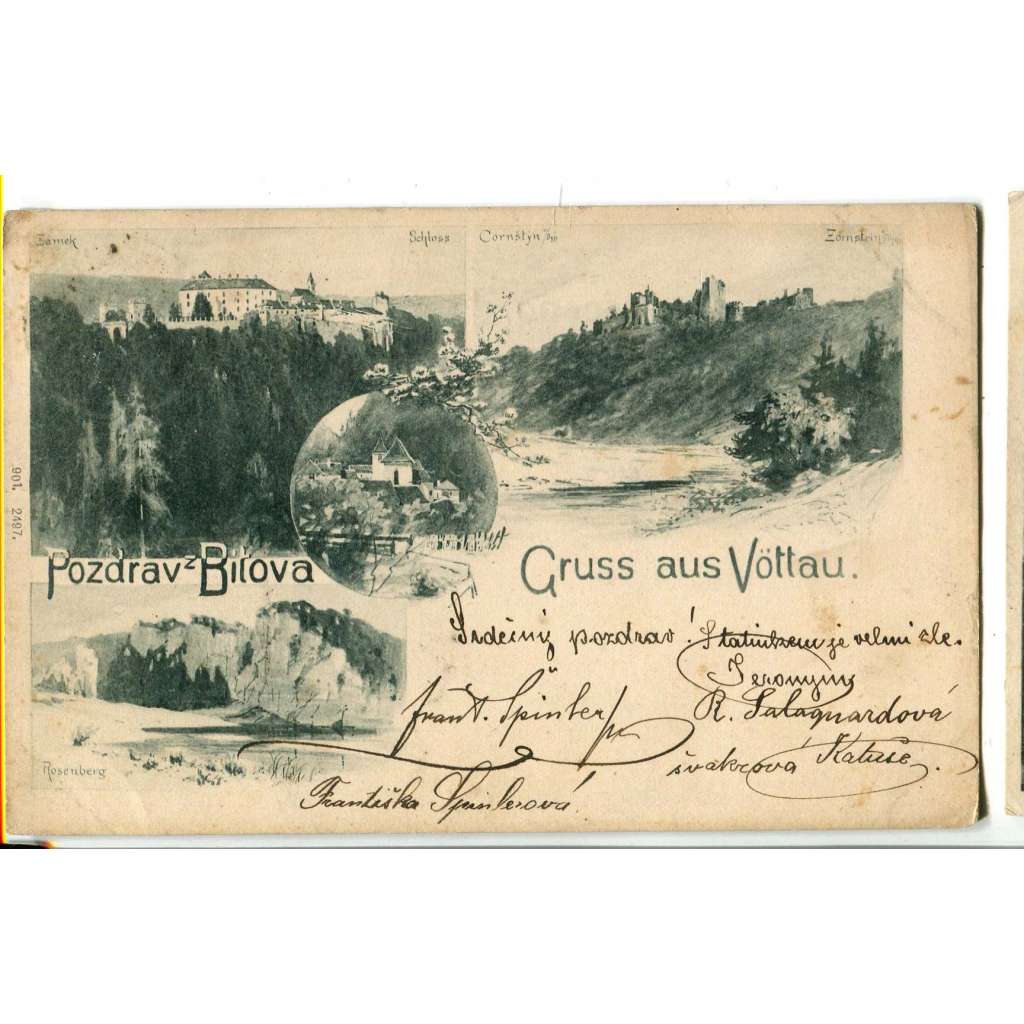 Zámek
Schloss
Cornštýn
Zornstein
901, 2497.
Pozdrav z Bítova
Gruss aus Vöttau.
Rosenberg
Srdečný pozdrav! je velmi zle.
Jeronym
frant. Špinler
R. Salaquardová
švakrová Katuše.
Františka Špinlerová.